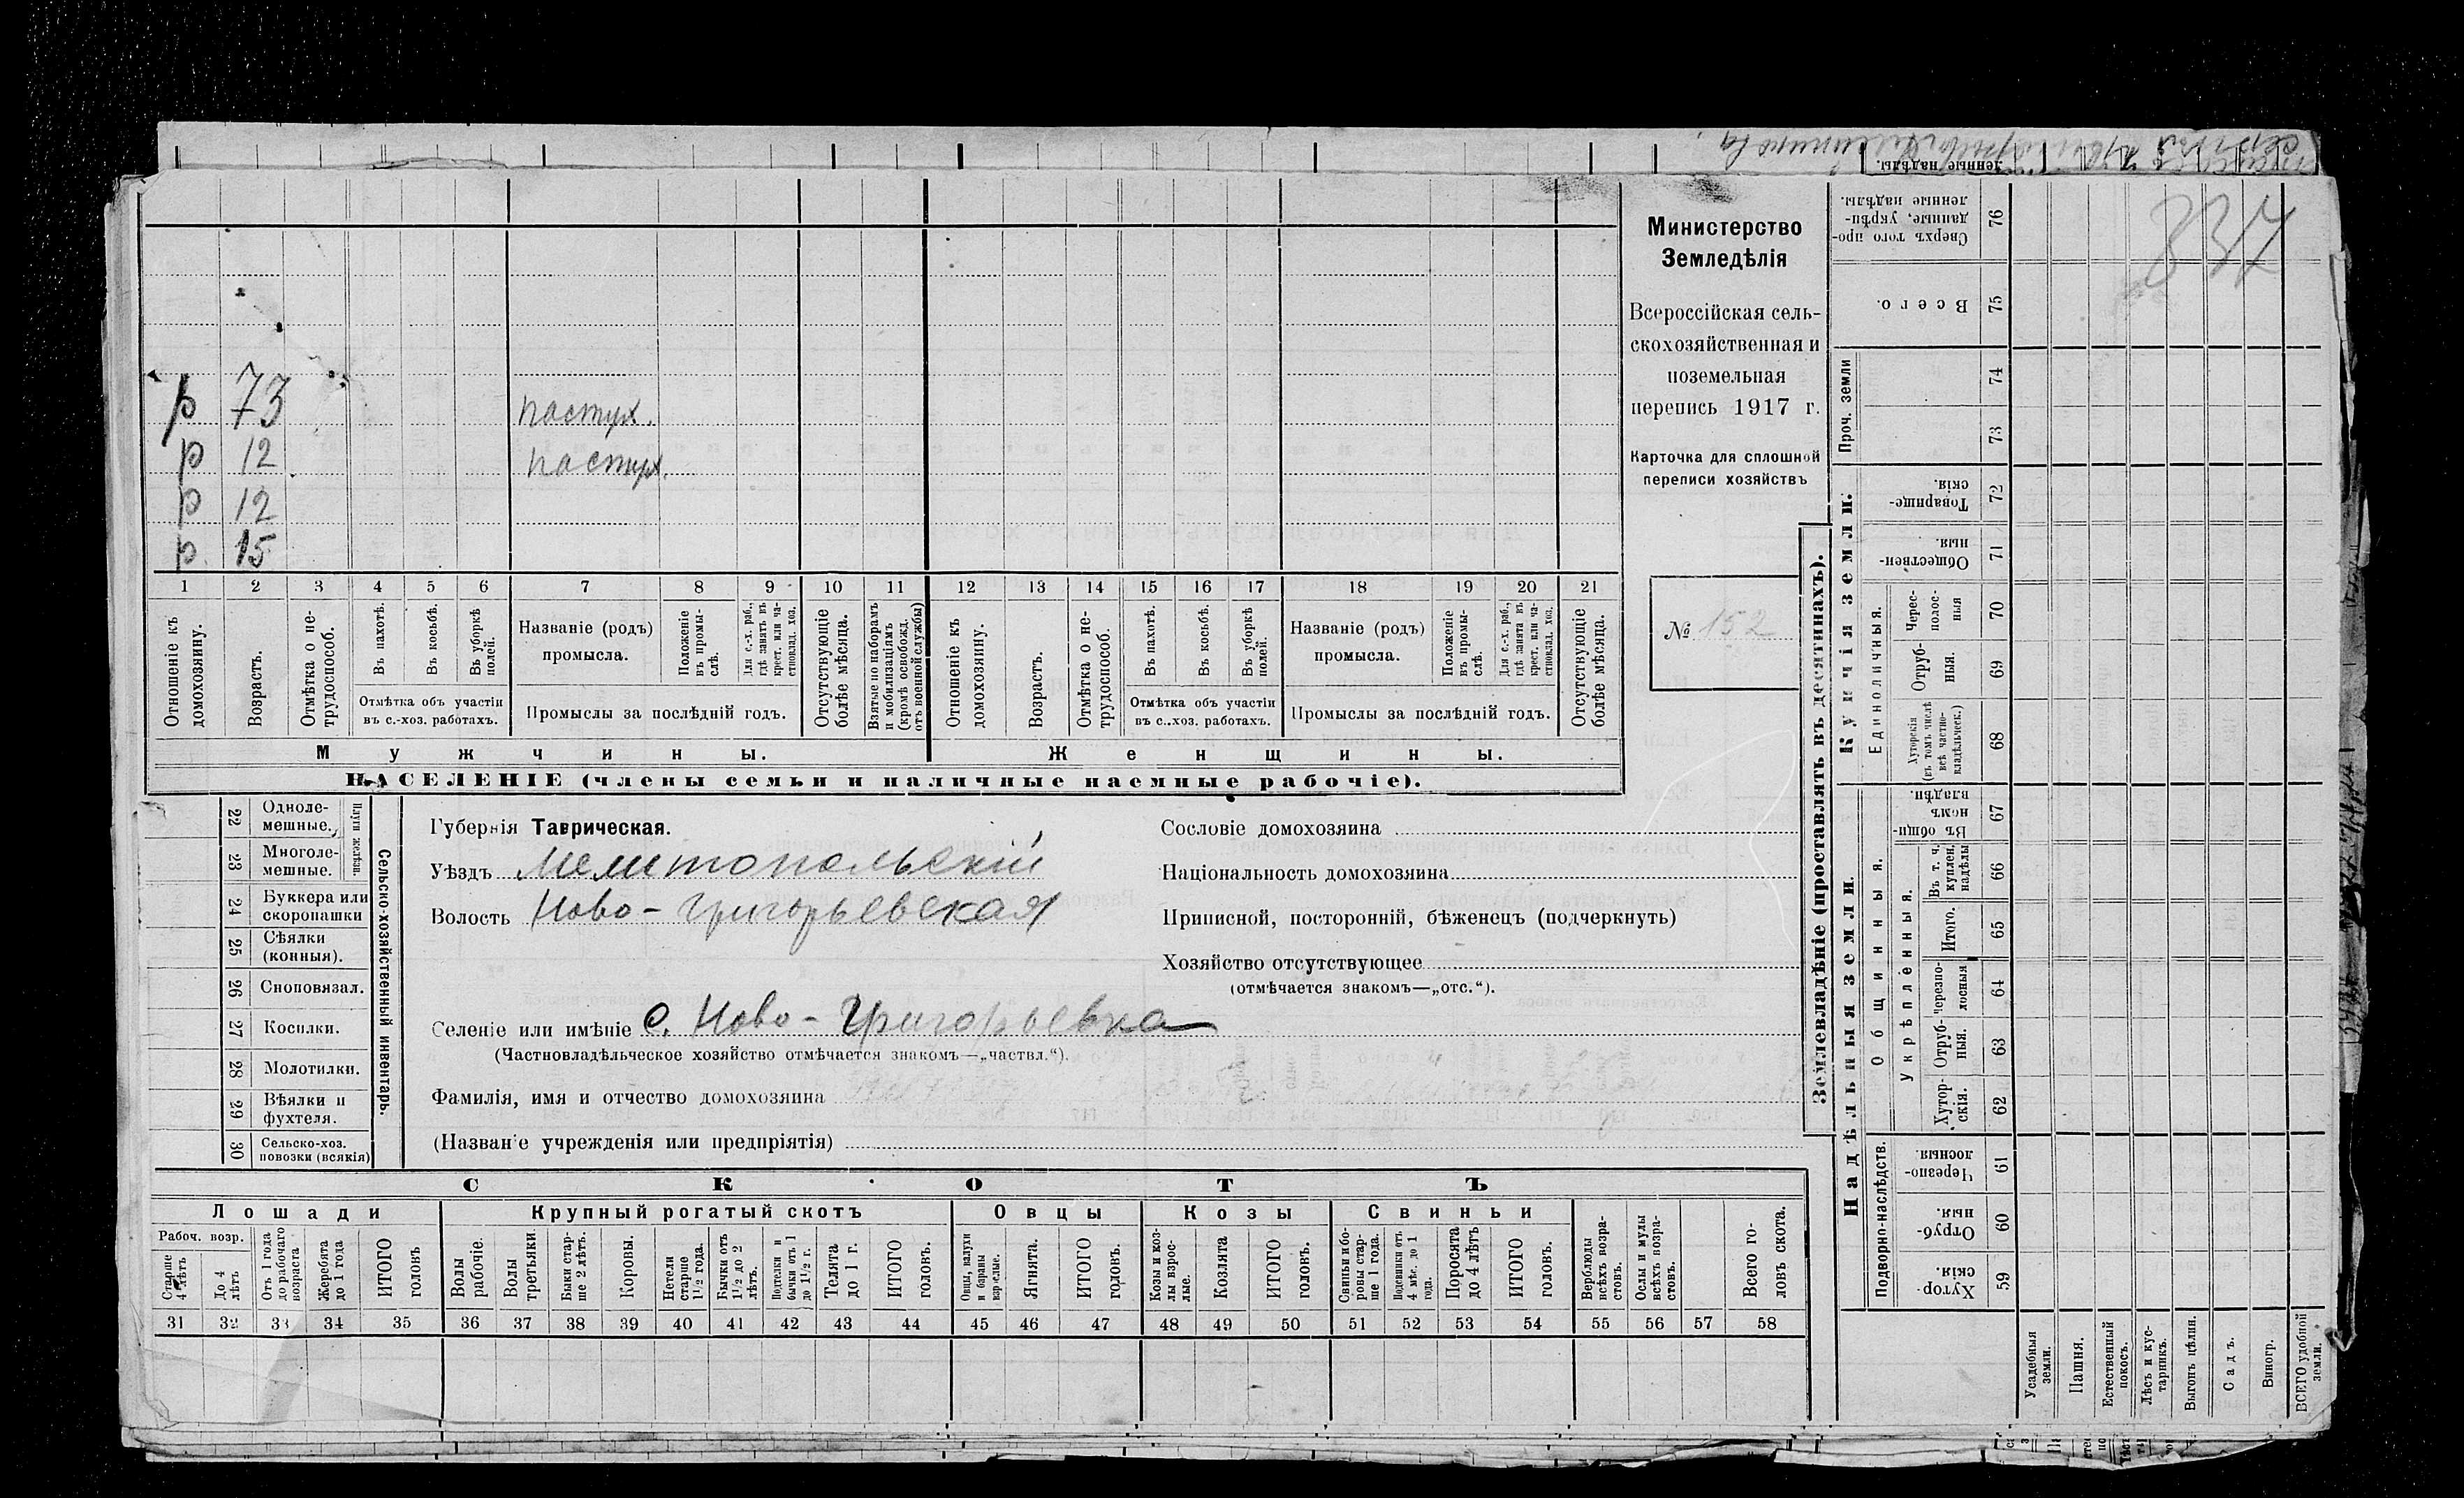 837
Министерство
Земледѣлія
Всероссійская сель-
скохозяйственная и
поземельная
перепись 1917 г.
Карточка для сплошной
переписи хозяйствъ
№ 152
р 73 пастух.
р 12 пастух.
р 12
р. 15
1 2 3 4 5 6 7 8 9 10 11 12 13 14 15 16 17 18 19 20 21
Отношеніе къ домохозяину.
Возрастъ.
Отмѣтка о не-трудоспособ.
Въ пахотѣ.
Въ косьбѣ.
Въ уборкѣ полей.
Отмѣтка объ участіи
въ с.-хоз. работахъ.
Названіе (родъ)
промысла.
Положеніе въ промы-слѣ.
Для с.-х. раб., гдѣ занятъ въ крест. или ча-стновлад. хоз.
Промыслы за послѣдній годъ.
Отсутствующіе болѣе мѣсяца.
Взятые по наборамъ и мобилизаціямъ (кромѣ освобожд. отъ военной службы)
Отношеніе къ домохозяину.
Возрастъ.
Отмѣтка о не-трудоспособ.
Въ пахотѣ.
Въ косьбѣ.
Въ уборкѣ полей.
Отмѣтка объ участіи
въ с..-хоз. работахъ.
Названіе (родъ)
промысла.
Положеніе въ промы-слѣ.
Для с.-х. раб., гдѣ занята въ крест. или ча-стновлад. хоз.
Промыслы за послѣдній годъ.
Отсутствующіе болѣе мѣсяца.
Мужчины.
Женщины.
НАСЕЛЕНІЕ (члены семьи и наличные наемные рабочіе).
Сельско-хозяйственный инвентарь.
Плуги желѣзн.
22 Одноле-мешные.
23 Многоле-мешные.
24 Буккера или скоропашки
25 Сѣялки (конныя).
26 Сноповязал.
27 Косилки.
28 Молотилки.
29 Вѣялки и фухтеля.
30 Сельско-хоз. повозки (всякія)
Губернія Таврическая.
Уѣздъ Мелитопольскій
Волость Ново-Григорьевская
Селеніе или имѣніе с. Ново-Григорьевка
(Частновладѣльческое хозяйство отмѣчается знакомъ—„частвл.“).
Фамилія, имя и отчество домохозяина
(Названіе учрежденія или предпріятія)
Сословіе домохозяина
Національность домохозяина
Приписной, посторонній, бѣженецъ (подчеркнуть)
Хозяйство отсутствующее
(отмѣчается знакомъ—„отс.“).
СКОТЪ
Лошади
Крупный рогатый скотъ
Овцы
Козы
Свиньи
Рабоч. возр.
Старше 4 лѣтъ
До 4 лѣтъ
Отъ 1 года до рабочаго возраста
Жеребята до 1 года
ИТОГО головъ
Волы рабочіе.
Волы третьяки
Быки стар-ше 2 лѣтъ.
Коровы.
Нетели старше 1½ года.
Бычки отъ 1½ до 2 лѣтъ.
Подтелки и бычки отъ 1 до 1½ г.
Телята до 1 г.
ИТОГО головъ.
Овцы, валухи и бараны взрослые.
Ягнята.
ИТОГО головъ.
Козы и коз-лы взрос-лые.
Козлята
ИТОГО головъ.
Свиньи и бо-ровы стар-ше 1 года.
Подсвинки отъ 4 мѣс. до 1 года.
Поросята до 4 лѣтъ
ИТОГО головъ.
Верблюды всѣхъ возра-стовъ.
Ослы и мулы всѣхъ возра-стовъ.
Всего го-ловъ скота.
31 32 33 34 35 36 37 38 39 40 41 42 43 44 45 46 47 48 49 50 51 52 53 54 55 56 57 58
Землевладѣніе (проставлять въ десятинахъ).
Надѣльныя земли.
Купчія земли.
Проч. земли
Подворно-наслѣдств.
Общинныя.
Укрѣпленныя.
Единоличныя.
76 Сверхъ того про-данные, укрѣп-ленные надѣлы.
75 Всего.
74
73
72 Товарище-скія.
71 Обществен-ныя.
70 Черес-полос-ныя
69 Отруб-ныя.
68 Хуторскія (въ томъ числѣ всѣ частно-владѣльческ.)
67 Въ общин-номъ владѣн.
66 Въ т. ч. куплен. надѣлы
65 Итого.
64 Черезпо-лосныя
63 Отруб-ныя.
62 Хутор-скія.
61 Черезпо-лосныя.
60 Отруб-ныя.
59 Хутор-скія.
Усадебныя земли.
Пашня.
Естественный покосъ.
Лѣсъ и кус-тарникъ.
Выгонъ цѣлин.
Садъ.
Виногр.
ВСЕГО удобной земли.